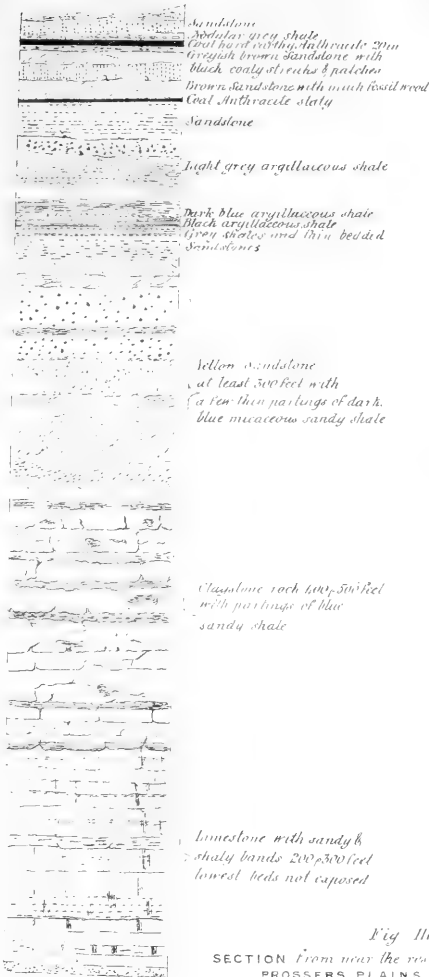 Sandstone
Nodular grey shale
Coal hard earthy Anthracite 20in
Greyish brown Sandstone with
black coaly streaks & patches
Brown Sandstone with much fossil wood
Coal Anthracite slaty
Sandstone
Light grey argillaceous shale
Dark blue argillaceous shale
Black argillaceous shale
Grey shales and thin bedded
Sandstones
Yellow Sandstone
at least 300 feet with
a few thin partings of dark
blue micaceous sandy shale
Claystone rock
with partings of blue
sandy shale
Limestone with sandy &
shaly bands 200 300 feet
lowest beds not exposed
Fig
SECTION from near the
PROSSERS PLAINS